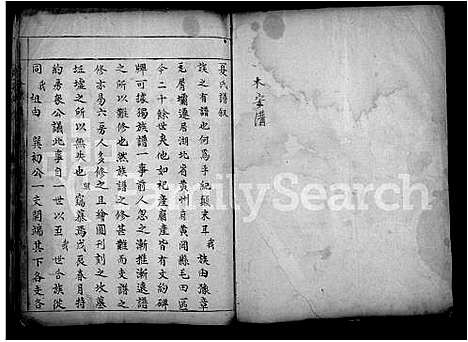 木字譜
夏氏譜叙
族之有譜也何為乎紀顛末耳我族由豫章
毛屑壩遷居湖北省黄州自黄岡縣毛田區
今二十餘世矣他如祀産廟産皆有文約
碑可據獨族譜一事前人忽之漸推漸遠譜
之所以難修也然族譜之修甚難而支譜之
修亦易六房人多修之且繪圖刊刻之坟墓
坵墟之所以無失也竊雇為戊辰春月特
約房衆公議此事自一世以至我世合族從
同我祖由巽初公一支開端其下各支各
FamilySearch